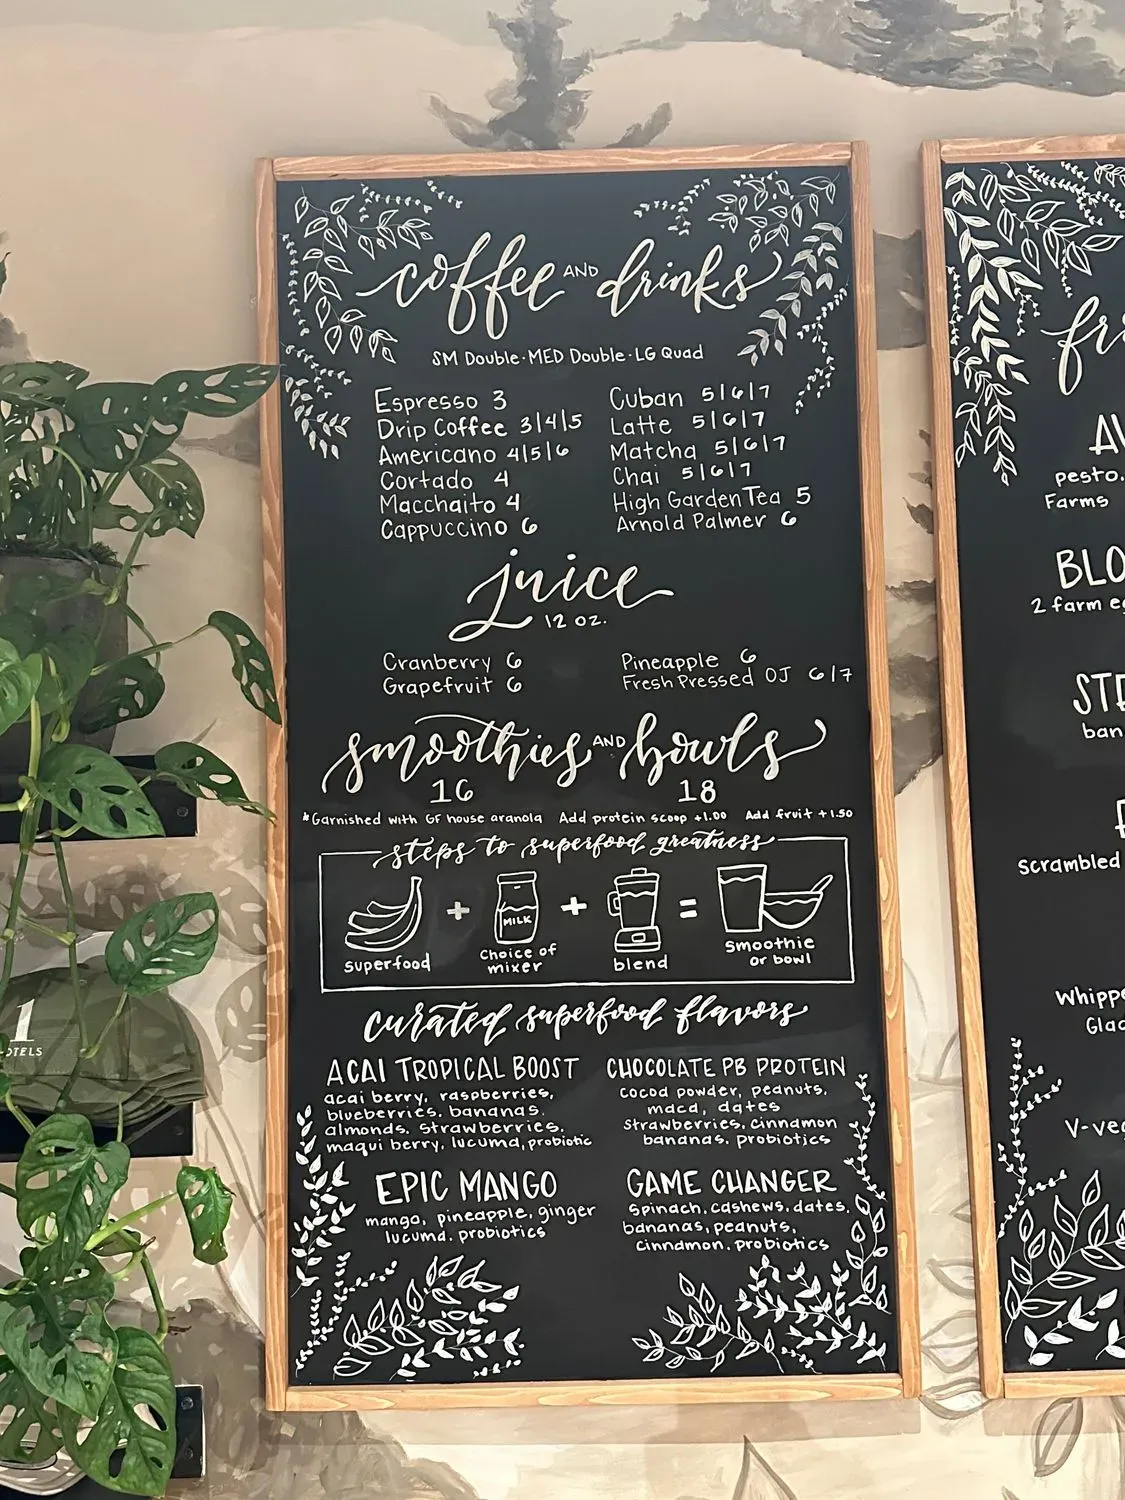 coffee AND drinks
SM Double·MED Double·LG Quad
Espresso 3
Drip Coffee 3/4/5
Americano 4/5/6
Cortado 4
Macchaito 4
Cappuccino 6
Cuban 5/6/7
Latte 5/6/7
Matcha 5/6/7
Chai 5/6/7
High Garden Tea 5
Arnold Palmer 6
juice
12 oz.
Cranberry 6
Grapefruit 6
Pineapple 6
Fresh Pressed OJ 6/7
smoothies AND bowls
16 18
*Garnished with GF house aranola Add protein scoop +1.00 Add fruit +1.50
steps to superfood greatness
MILK
superfood
+ choice of
mixer
+ blend
= smoothie
or bowl
curated superfood flavors
ACAI TROPICAL BOOST
acai berry, raspberries,
blueberries, bananas,
almonds, strawberries,
maqui berry, lucuma, probiotic
CHOCOLATE PB PROTEIN
cocoa powder, peanuts,
maca, dates
strawberries, cinnamon
bananas, probiotics
EPIC MANGO
mango, pineapple, ginger
lucuma, probiotics
GAME CHANGER
spinach, cashews, dates,
bananas, peanuts,
cinnamon, probiotics
fr
AV
pesto.
Farms
BLO
2 farm eg
STE
ban
Scrambled
Whippe
Glac
V-veg
1
OTELS